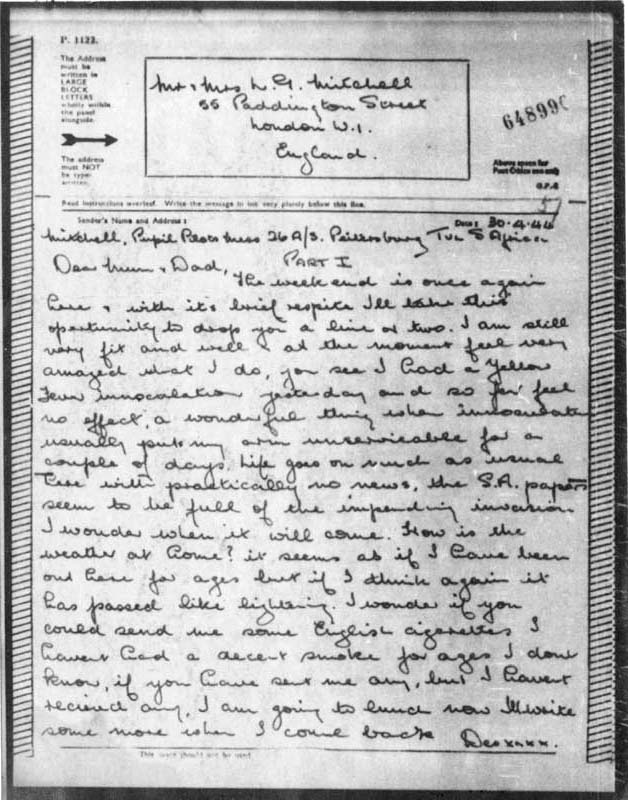 P. 1122.
The Address
must be
written in
LARGE
BLOCK
LETTERS
wholly within
the panel
alongside.
The address
must NOT
be type-
written.
Mr & Mrs L. G. Mitchell
55 Paddington Street
London W.1.
England.
64899
Above space for
Post Office use only
Read instructions overleaf. Write the message in ink very plainly below this line.
Sender's Name and Address:
Date: 30-4-44
Mitchell, Pupil Pilots Mess 26 A/S. Pietersburg Tvl S Africa
Dear Mum & Dad, PART I
The week end is once again
here & with it's brief respite I'll take this
oportunity to drop you a line or two. I am still
very fit and well & at the moment feel very
amazed what I do, you see I had a Yellow
Fever innocolation yesterday and so far feel
no effect, a wonderful thing when innoculated
usually puts my arm unservicable for a
couple of days. Life goes on much as usual
here with practically no news, the S.A. papers
seem to be full of the impending invasion
I wonder when it will come. How is the
weather at home? it seems as if I have been
out here for ages but if I think again it
has passed like lightening. I wonder if you
could send me some English cigarettes I
havent had a decent smoke for ages I dont
know, if you have sent me any, but I havent
recieved any, I am going to lunch now I'll write
some more when I come back xxxx.
This space should not be used